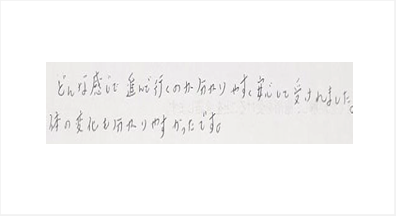 どんな感じで進んで行くのか分かりやすく安心して受けれました。
体の変化も分かりやすかったです。